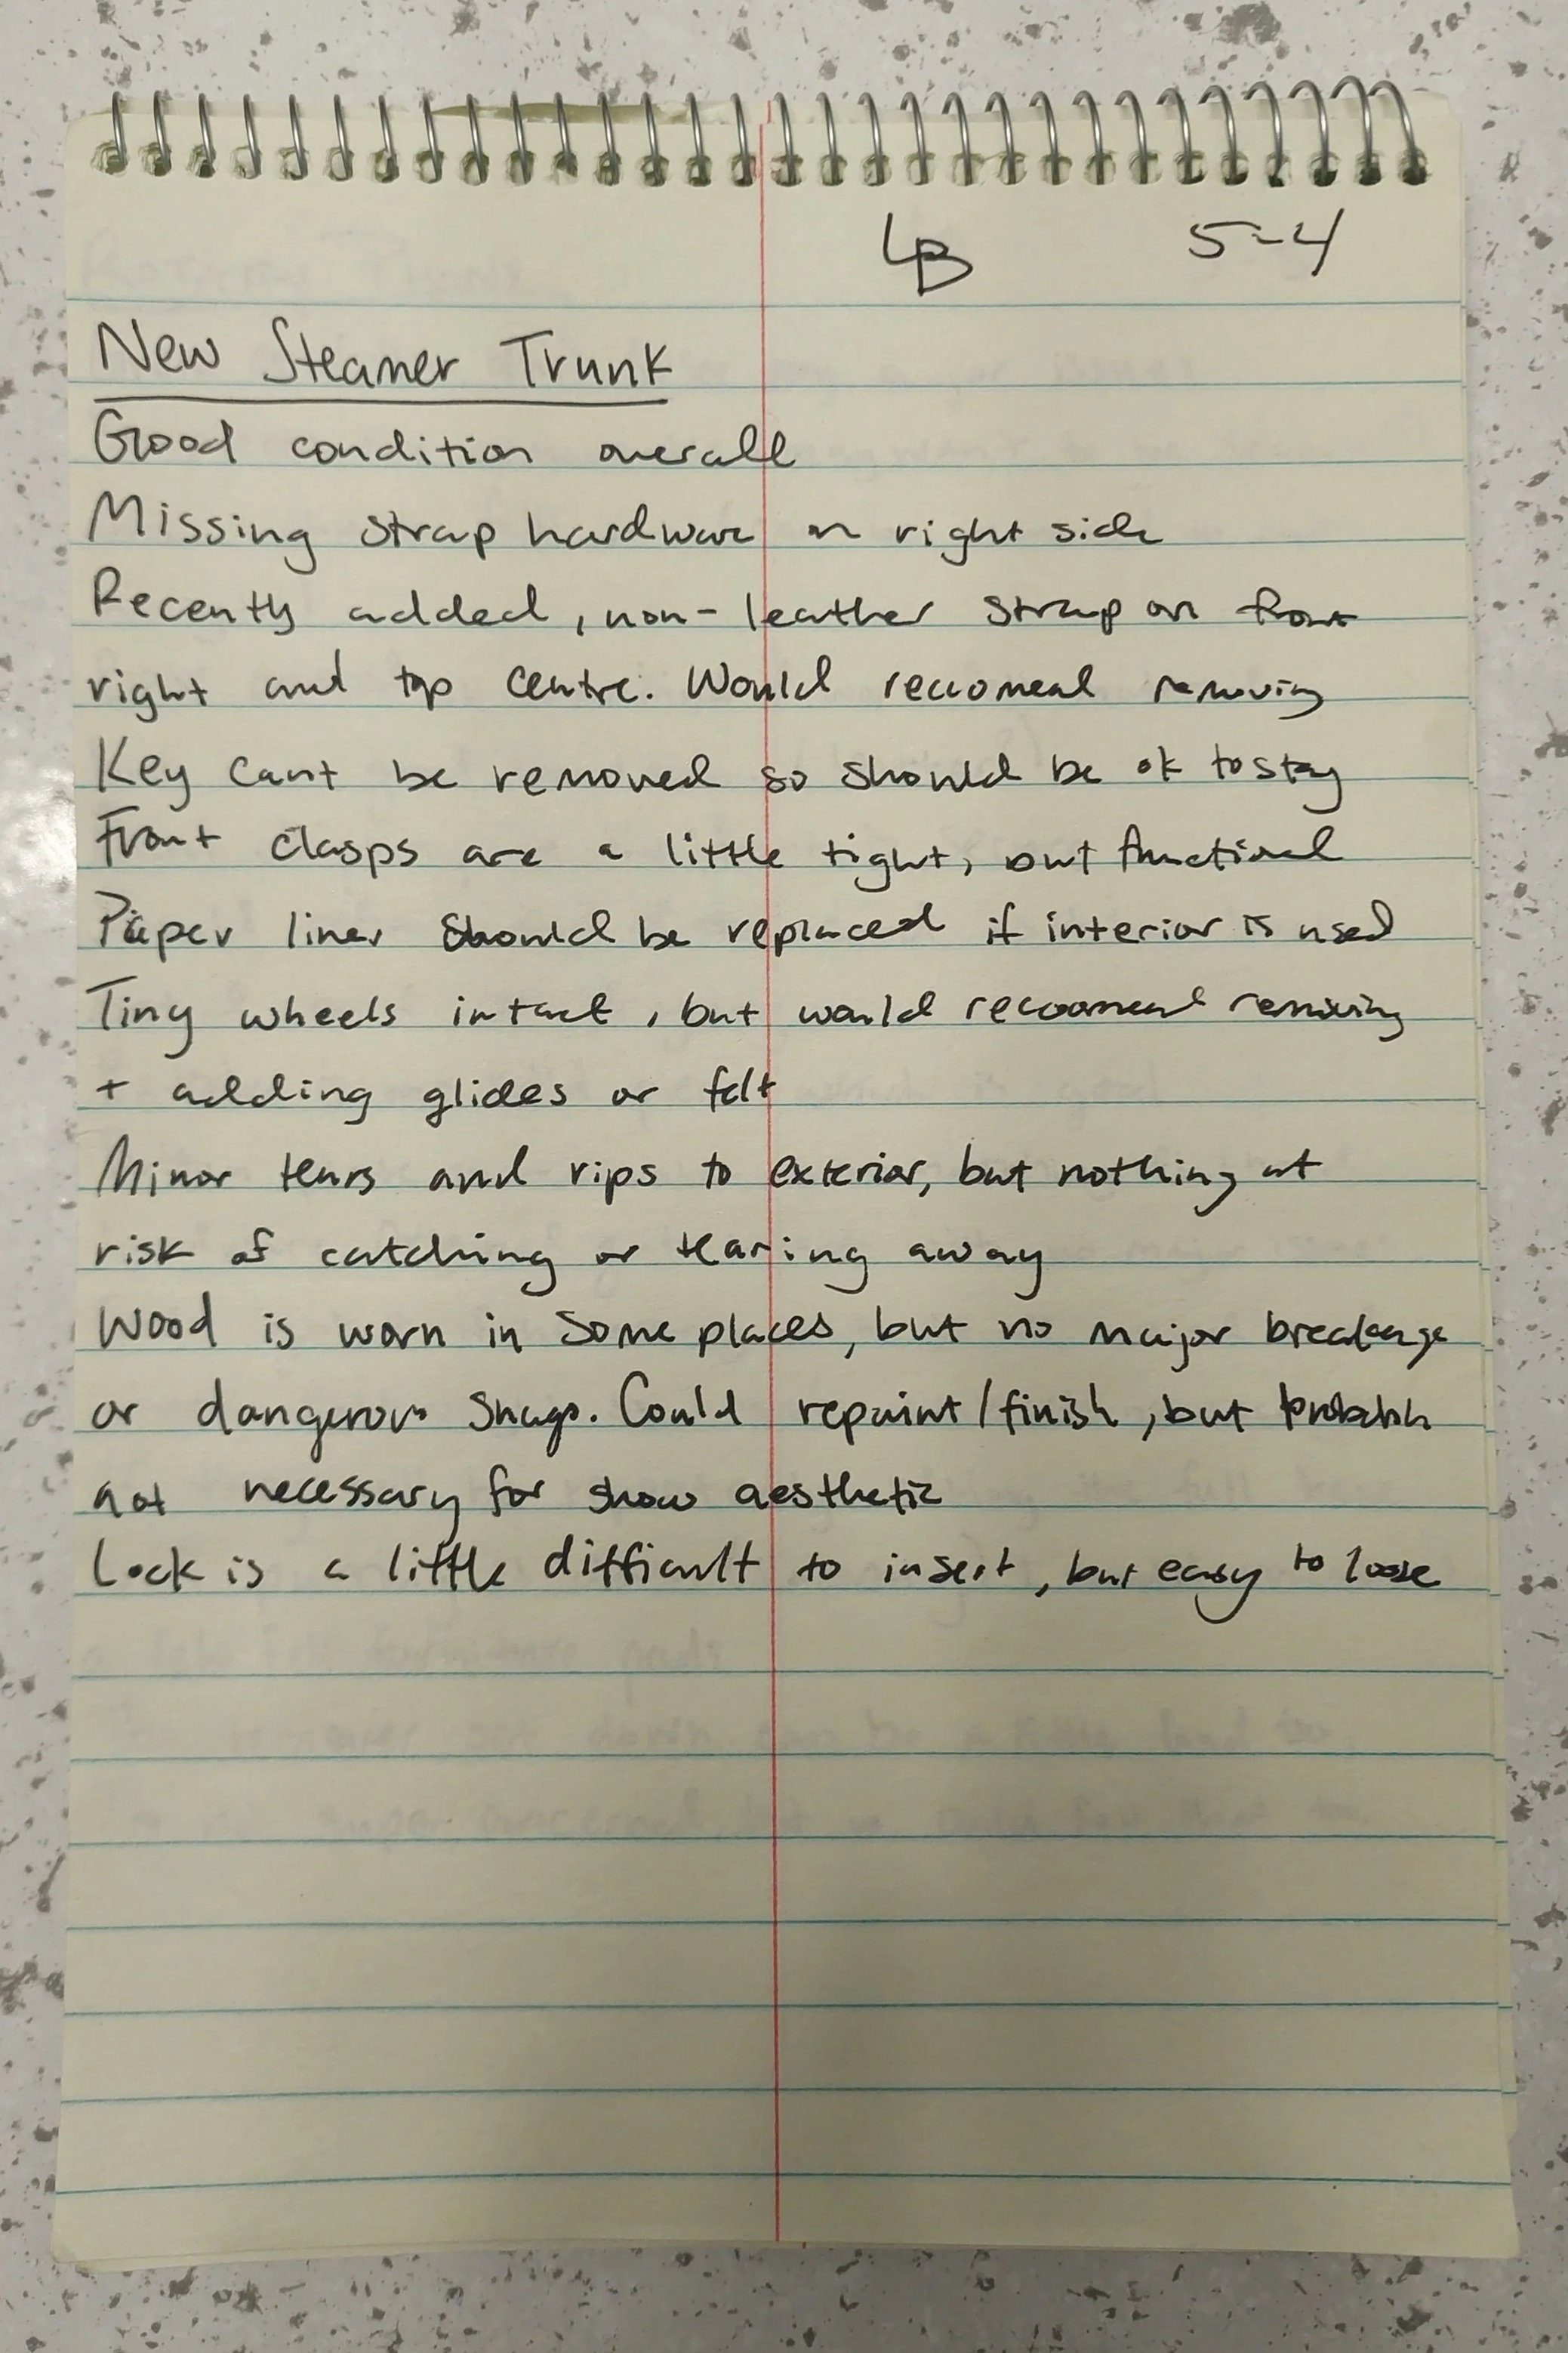 LB 5-4
New Steamer Trunk
Good condition overall
Missing strap hardware on right side
Recently added, non-leather strap on front
right and top centre. Would reccomend removing
Key cant be removed so should be ok to stay
Front clasps are a little tight, but functional
Paper liner should be replaced if interior is used
Tiny wheels intact, but would reccomend removing
+ adding glides or felt
Minor tears and rips to exterior, but nothing at
risk of catching or tearing away
Wood is worn in some places, but no major breakage
or dangerous snags. Could repaint/finish, but probably
not necessary for show aesthetic
Lock is a little difficult to insert, but easy to loose